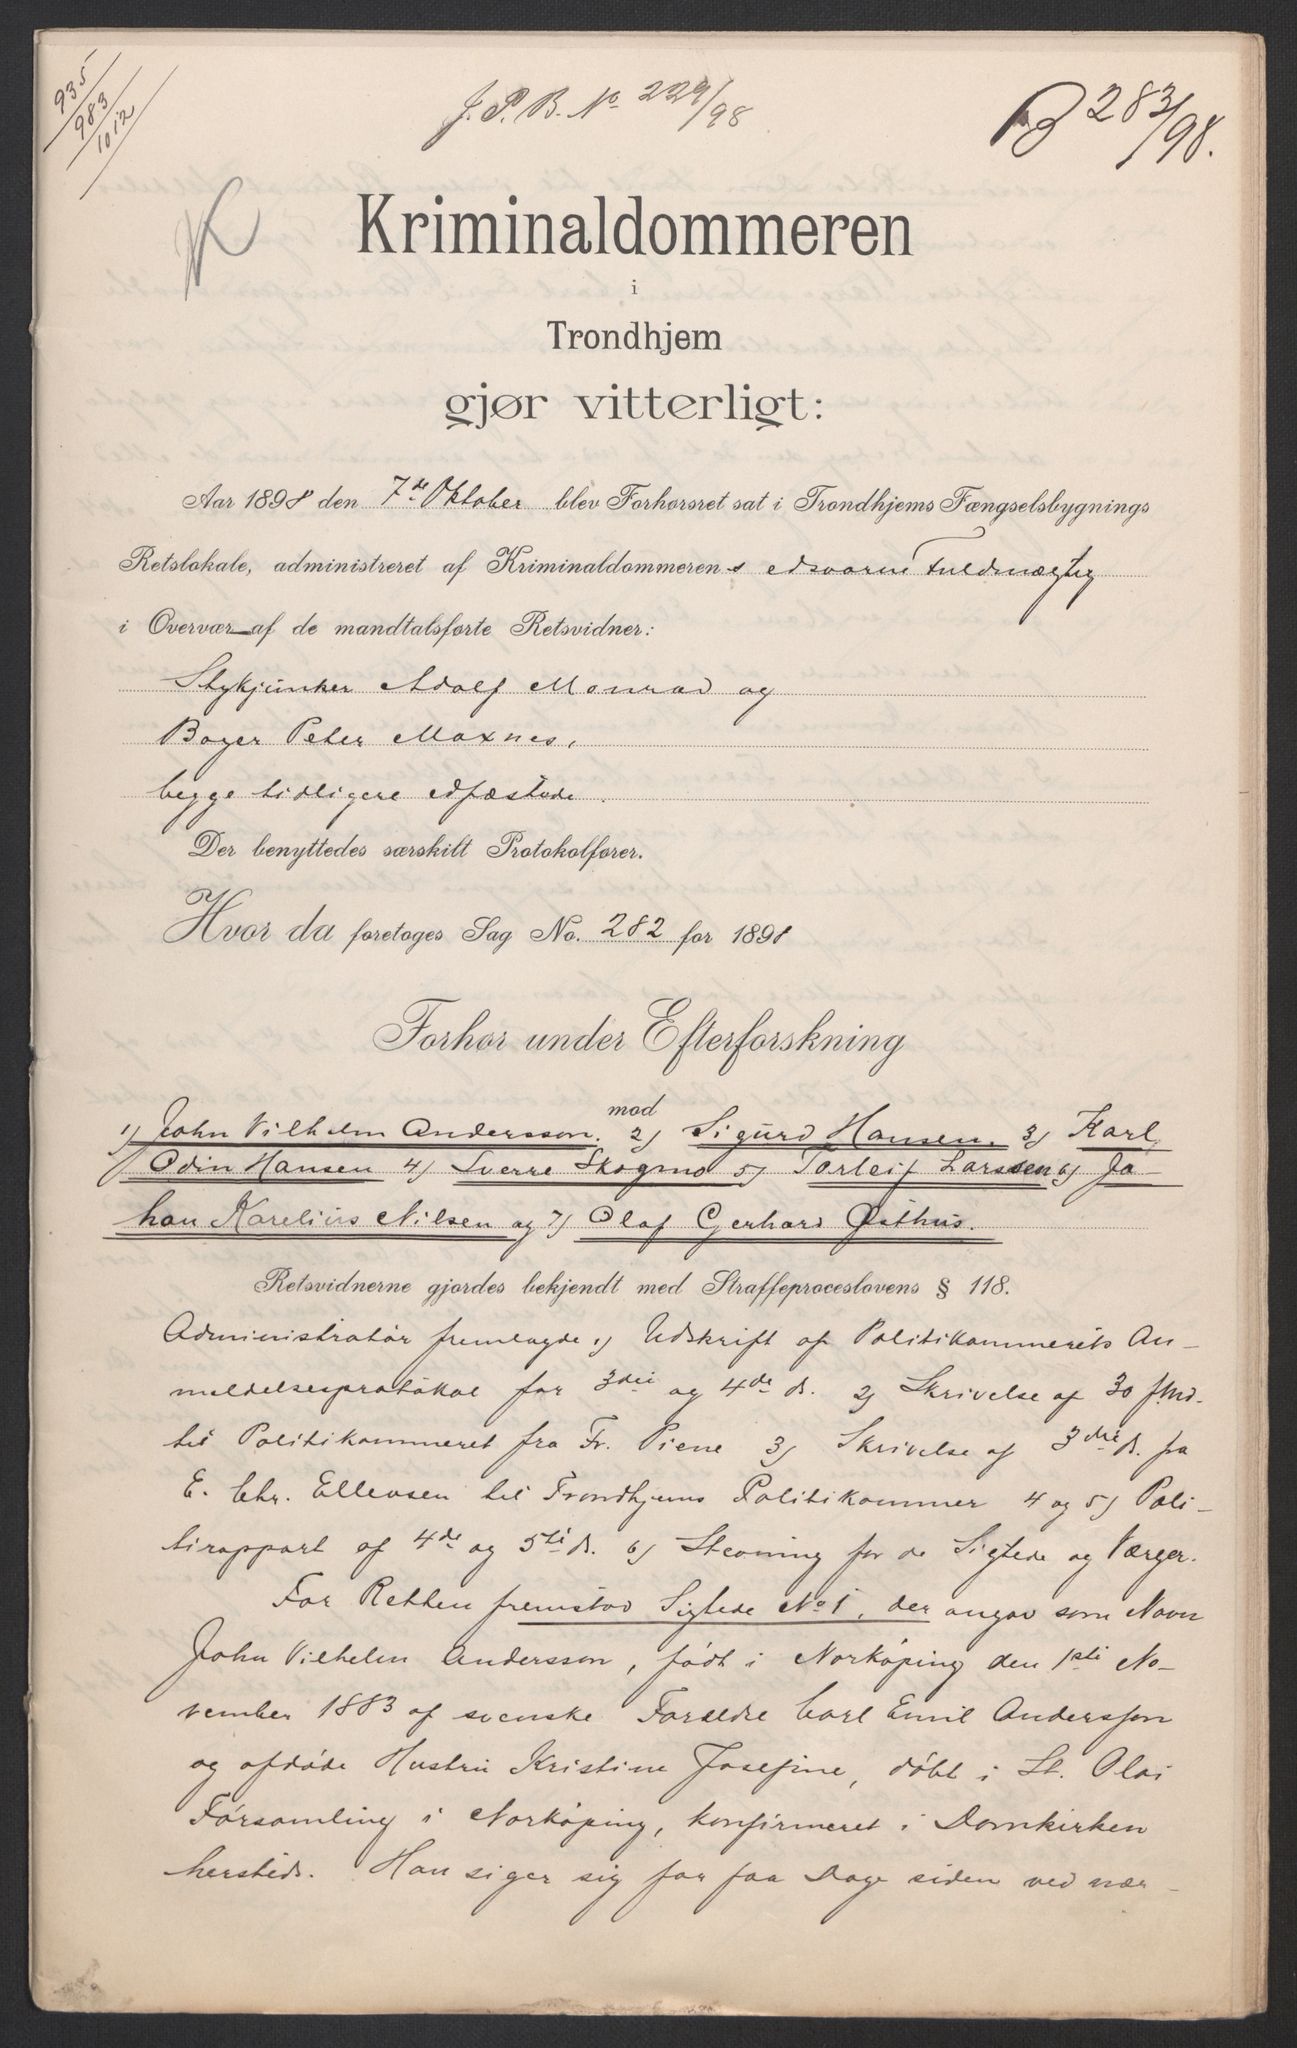 935/
983/
1012
J. P. B. No 229/98
B 283/98.
Kriminaldommeren
i
Trondhjem
gjør vitterligt:
Aar 1898 den 7de Oktober blev Forhørsret sat i Trondhjems Fængselsbygnings
Retslokale, administreret af Kriminaldommerens edsvorne Fuldmægtig
i Overvær af de mandtalsførte Retsvidner:
Stykjunker Adolf Monrad og
Bager Peter Moxnes,
begge tidligere edfæstede.
Der benyttedes særskilt Protokolfører.
Hvor da foretoges Sag No. 282 for 1898
Forhør under Efterforskning
mod
1) John Vilhelm Andersson. 2) Sigurd Hansen. 3) Karl
Odin Hansen 4) Sverre Skogmo 5) Torleif Larssen 6) Jo-
han Karelius Nilsen og 7) Olaf Gerhard Østhus.
Retsvidnerne gjordes bekjendt med Straffeproceslovens § 118.
Administrator fremlagde 1) Udskrift af Politikammerets An-
meldelsesprotokol for 3die og 4de ds. 2) Skrivelse af 30 f. Md.
til Politikammeret fra Fr. Piene 3) Skrivelse af 3die ds. fra
E. Chr. Ellevsen til Trondhjems Politikammer 4 og 5) Poli-
tirapport af 4de og 5te ds. 6) Stevning for de Sigtede og Værger.
For Retten fremstod Sigtede No 1, der angav som Navn
John Vilhelm Andersson, født i Norköping den 1ste No-
vember 1883 af svenske Forældre Carl Emil Andersson
og afdøde Hustru Kristine Josefine, døbt i St. Olai
Församling i Norköping, konfirmeret i Domkirken
hersteds. Han siger sig for faa Dage siden ved nær-